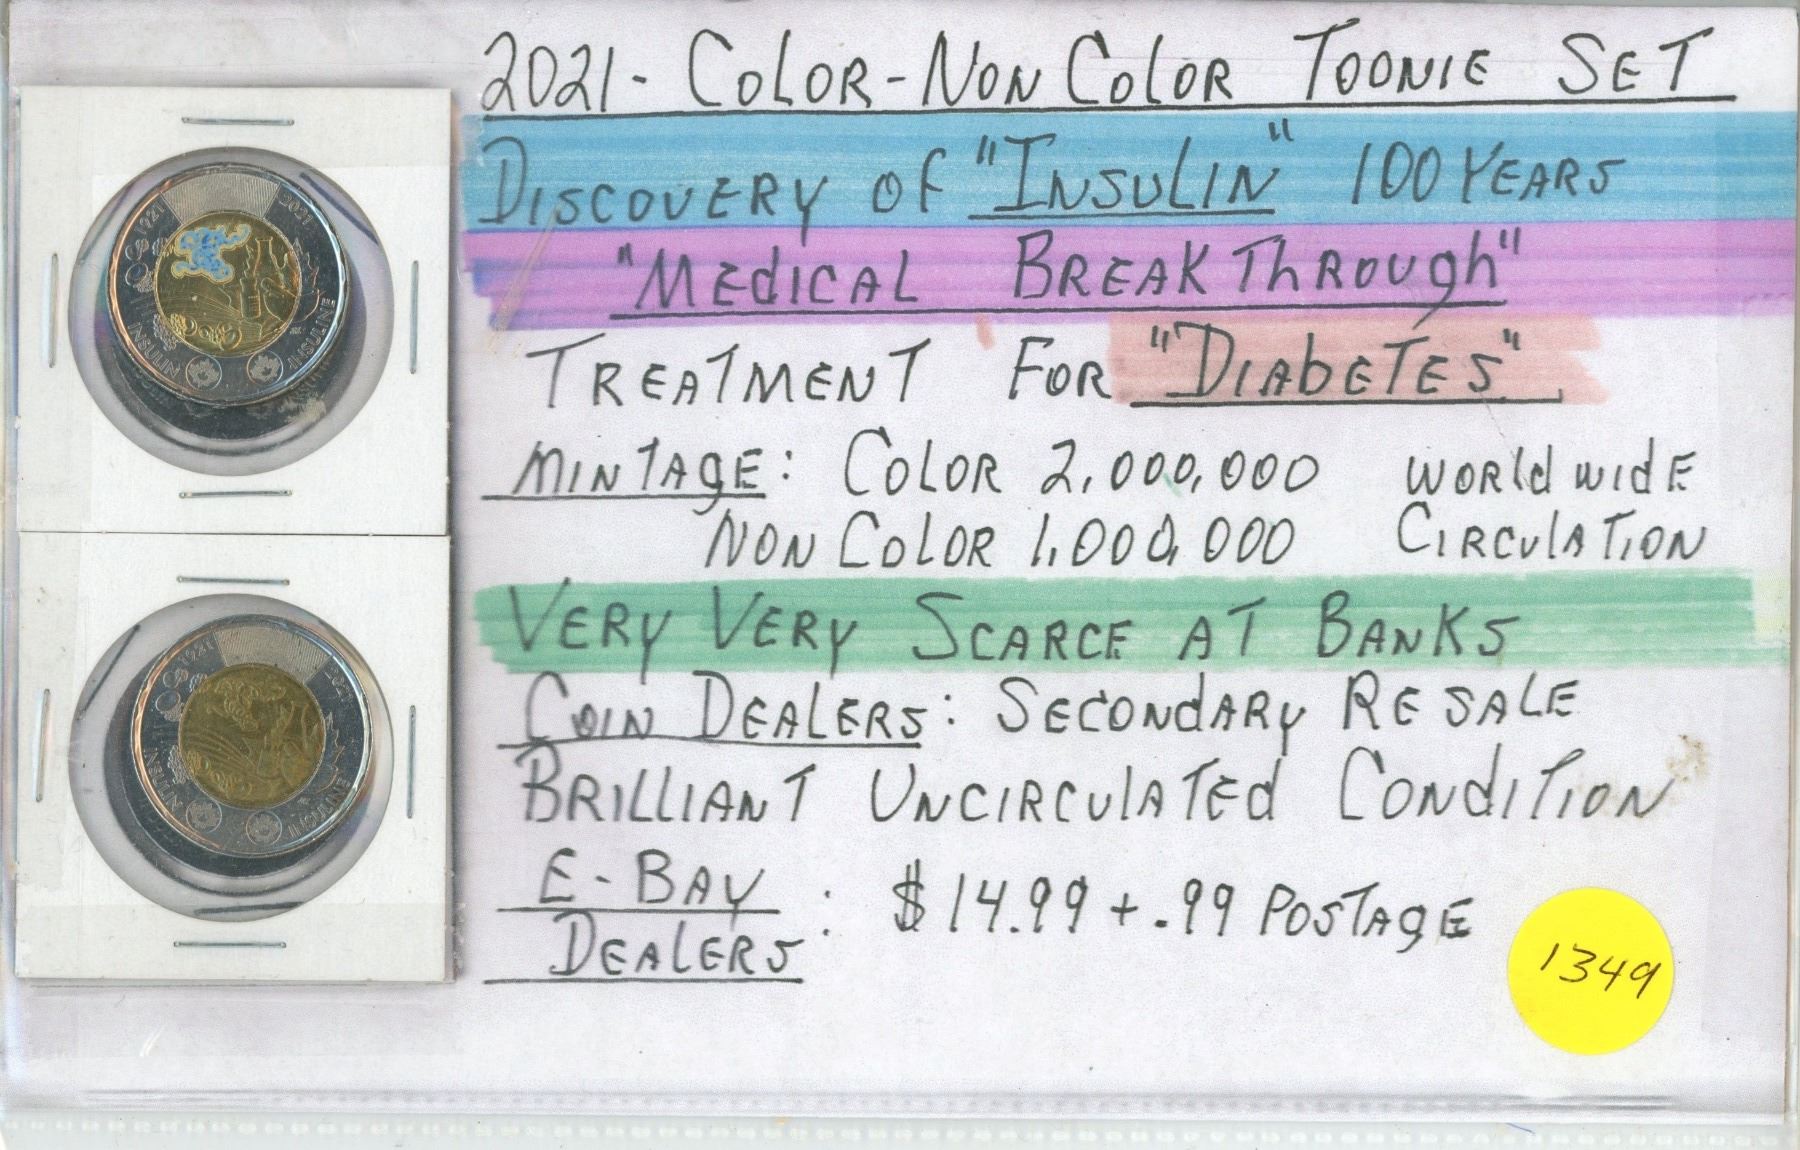 2021 - COLOR - NON COLOR TOONIE SET
DISCOVERY OF "INSULIN" 100 YEARS
"MEDICAL BREAKTHROUGH"
TREATMENT FOR "DIABETES"
MINTAGE: COLOR 2,000,000 WORLDWIDE
NON COLOR 1,000,000 CIRCULATION
VERY VERY SCARCE AT BANKS
COIN DEALERS: SECONDARY RESALE
BRILLIANT UNCIRCULATED CONDITION
E-BAY DEALERS: $14.99 + .99 POSTAGE
1349
1921 2021
INSULIN INSULINE
1921 2021
INSULIN INSULINE